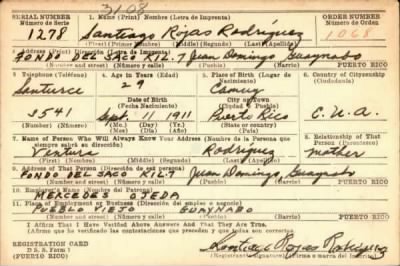 3108
SERIAL NUMBER 1. NAME (Print) Nombre (Letra de Imprenta) ORDER NUMBER
Número de Serie Número de Orden
1278 Santiago Rojas Rodríguez 1068
(First) (Primer Nombre) (Middle) (Segundo) (Last) (Apellido)
2. ADDRESS (Print) Dirección (Letra de Imprenta)
FONDO DEL SACO KIL. 7 Juan Domingo Guaynabo
(Number) (Número) (Street) (Calle) (Barrio) PUERTO RICO
3. Telephone (Teléfono) 4. Age in Years (Edad) 5. Place of Birth (Lugar de Nacimiento) 6. Country of Citizenship (Ciudadanía)
Santurce 29 Camuy
Date of Birth City or Town
(Fecha Nacimiento) (Ciudad o Pueblo)
3541 Sept. 11 1911 Puerto Rico E.U.A.
(Number) (Número) (Mo.) (Day) (Yr.) (Country) (País)
7. Name of Person Who Will Always Know Your Address (Nombre de la Persona que siempre sabrá su dirección) 8. Relationship of That Person (Parentesco)
Rodríguez mother
(First) (Nombre) (Middle) (Segundo) (Last) (Apellido)
9. Address of That Person (Dirección de esa persona)
FONDO DEL SACO KIL. 7 Juan Domingo Guaynabo
(Number) (Número) (Street) (Calle) (Barrio) PUERTO RICO
10. Employer's Name (Nombre del Patrono)
MERCEDES OJEDA
11. Place of Employment or Business (Dirección del empleo o negocio)
PUEBLO VIEJO GUAYNABO
(Number) (Número) (Street) (Calle) (Barrio) PUERTO RICO
I Affirm That I Have Verified Above Answers And That They are True.
(Afirmo que he verificado las contestaciones que preceden y que todas son correctas)
REGISTRATION CARD
D. S. S. Form 1
(PUERTO RICO)
Santiago Rojas Rodríguez
(Registrant's Signature) (Firma o marca del Inscrito)